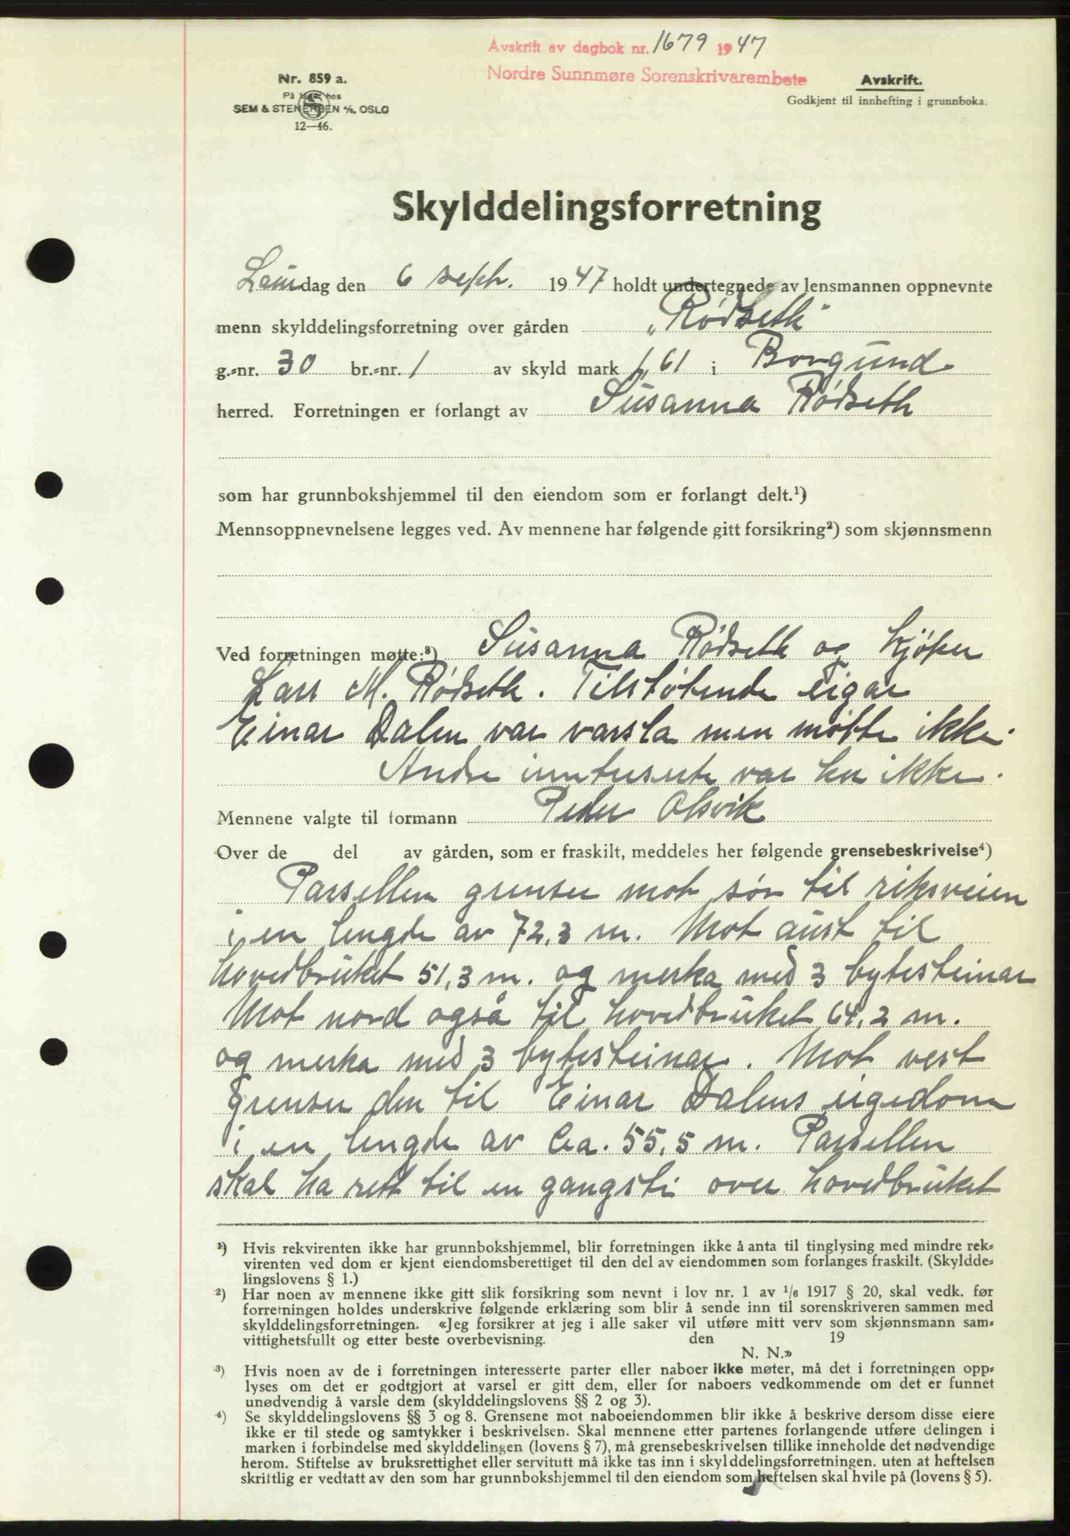 Avskrift av dagbok nr. 1679 1947
Nordre Sunnmøre Sorenskrivarembete
Nr. 859 a.
På lager hos
SEM & STENERSEN A/S, OSLO
12—46.
Avskrift.
Godkjent til innhefting i grunnboka.
Skylddelingsforretning
Laurdag den 6 sept. 1947 holdt undertegnede av lensmannen oppnevnte
menn skylddelingsforretning over gården "Rødseth"
g.-nr. 30 br.-nr. 1 av skyld mark 1,61 i Borgund
herred. Forretningen er forlangt av Susanna Rødseth
som har grunnbokshjemmel til den eiendom som er forlangt delt.¹)
Mennsoppnevnelsene legges ved. Av mennene har følgende gitt forsikring²) som skjønnsmenn
Ved forretningen møtte:³) Susanna Rødseth og kjøper
Lars M. Rødseth. Tilstøtende eigar
Einar Dalen var varsla men møtte ikke.
Andre inntreserte var her ikke.
Mennene valgte til formann Peder Alsvik
Over de del av gården, som er fraskilt, meddeles her følgende grensebeskrivelse⁴)
Parsellen grenser mot sør til riksveien
i en lengde av 72,3 m. Mot aust til
hovedbruket 51,3 m. og merka med 3 bytesteinar
Mot nord også til hovedbruket 64,2 m.
og merka med 3 bytesteinar. Mot vest
grenser den til Einar Dalens eigedom
i en lengde av Ca. 55,5 m. Parsellen
skal ha rett til en gangsti over hovedbruket
¹) Hvis rekvirenten ikke har grunnbokshjemmel, blir forretningen ikke å anta til tinglysing med mindre rek-
virenten ved dom er kjent eiendomsberettiget til den del av eiendommen som forlanges fraskilt. (Skyldde-
lingslovens § 1.)
²) Har noen av mennene ikke gitt slik forsikring som nevnt i lov nr. 1 av 1/6 1917 § 20, skal vedk. før
forretningen holdes underskrive følgende erklæring som blir å sende inn til sorenskriveren sammen med
skylddelingsforretningen. «Jeg forsikrer at jeg i alle saker vil utføre mitt verv som skjønnsmann sam-
vittighetsfullt og etter beste overbevisning. den 19
N. N.»
³) Hvis noen av de i forretningen interesserte parter eller naboer ikke møter, må det i forretningen opp-
lyses om det er godtgjort at varsel er gitt dem, eller for naboers vedkommende om det er funnet
unødvendig å varsle dem (skylddelingslovens §§ 2 og 3).
⁴) Se skylddelingslovens §§ 3 og 8. Grensene mot naboeiendommen blir ikke å beskrive dersom disse eiere
ikke er til stede og samtykker i beskrivelsen. Skal mennene etter partenes forlangende utføre delingen i
marken i forbindelse med skylddelingen (lovens § 7), må grensebeskrivelsen tillike inneholde det nødvendige
herom. Stiftelse av bruksrettighet eller servitutt må ikke tas inn i skylddelingsforretningen. uten at heftelsen
skriftlig er vedtatt av den som har grunnbokshjemmel til den eiendom som heftelsen skal hvile på (lovens § 5).